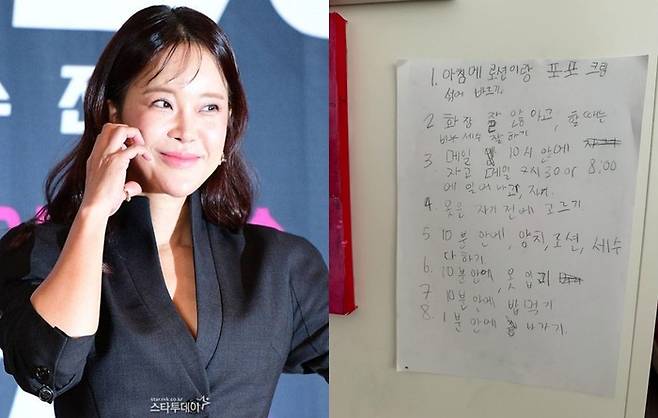 전
star.mk.co.kr
스타투데이
1. 아침에 로션이랑 포포 크림
섞어 바르기
2 화장 잘 안하고, 할때는
세수 잘하기
3 매일 10시 안에
자고 매일 7시30이 8:00
에 일어나고,
4. 옷은 자기 전에 고르기
5 10분 안에, 양치, 로션, 세수
다하기
6. 10분안에, 옷입기
7 10분안에 밥먹기
8. 1분안에 나가기.